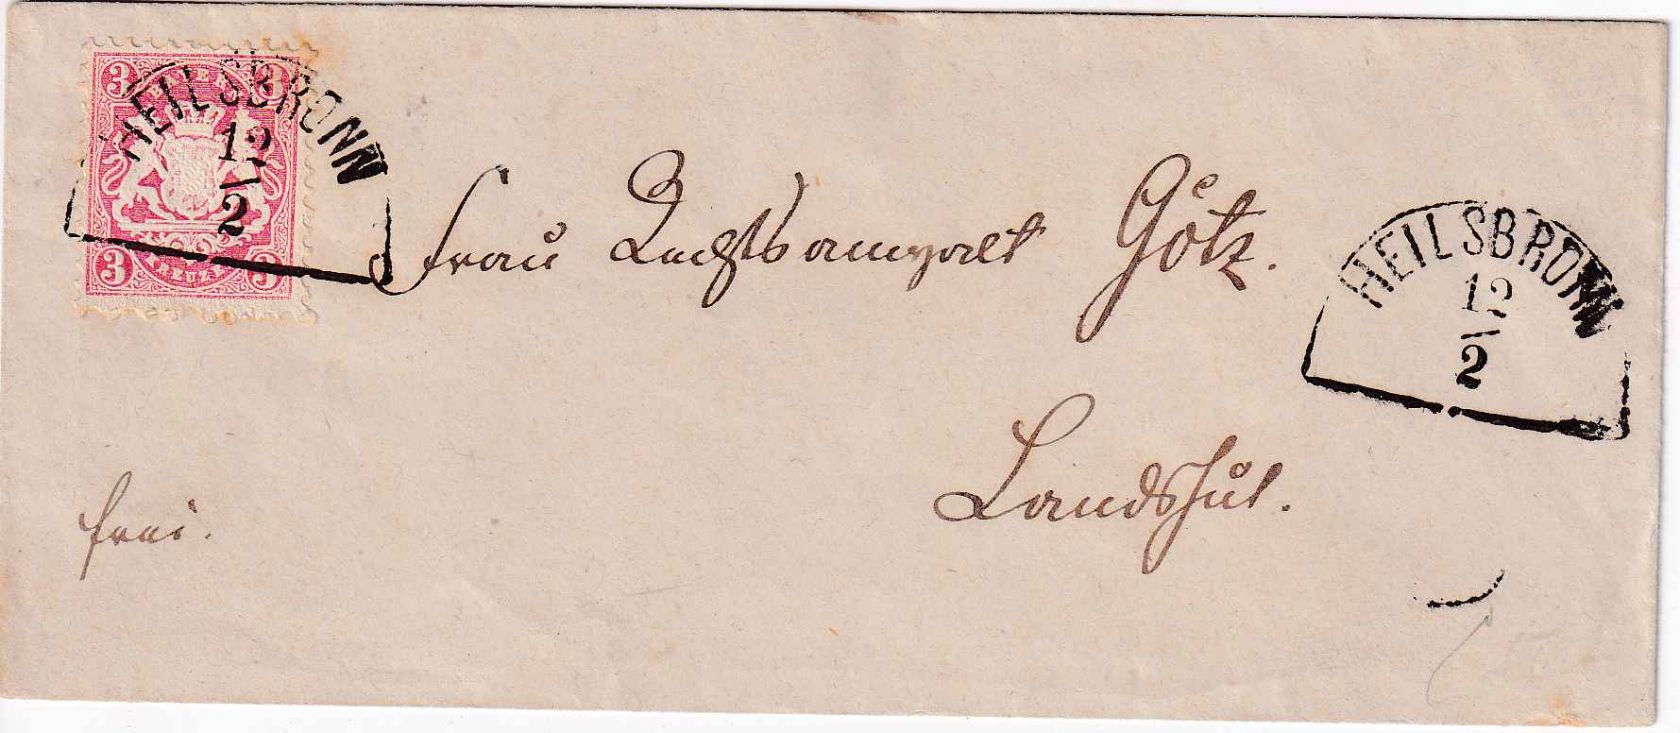 3 BAYERN 3
HEILSBRONN
12
2
3 KREUZER 3
Frau Rechtsanwalt Götz.
HEILSBRONN
12
2
Landshut.
frei.